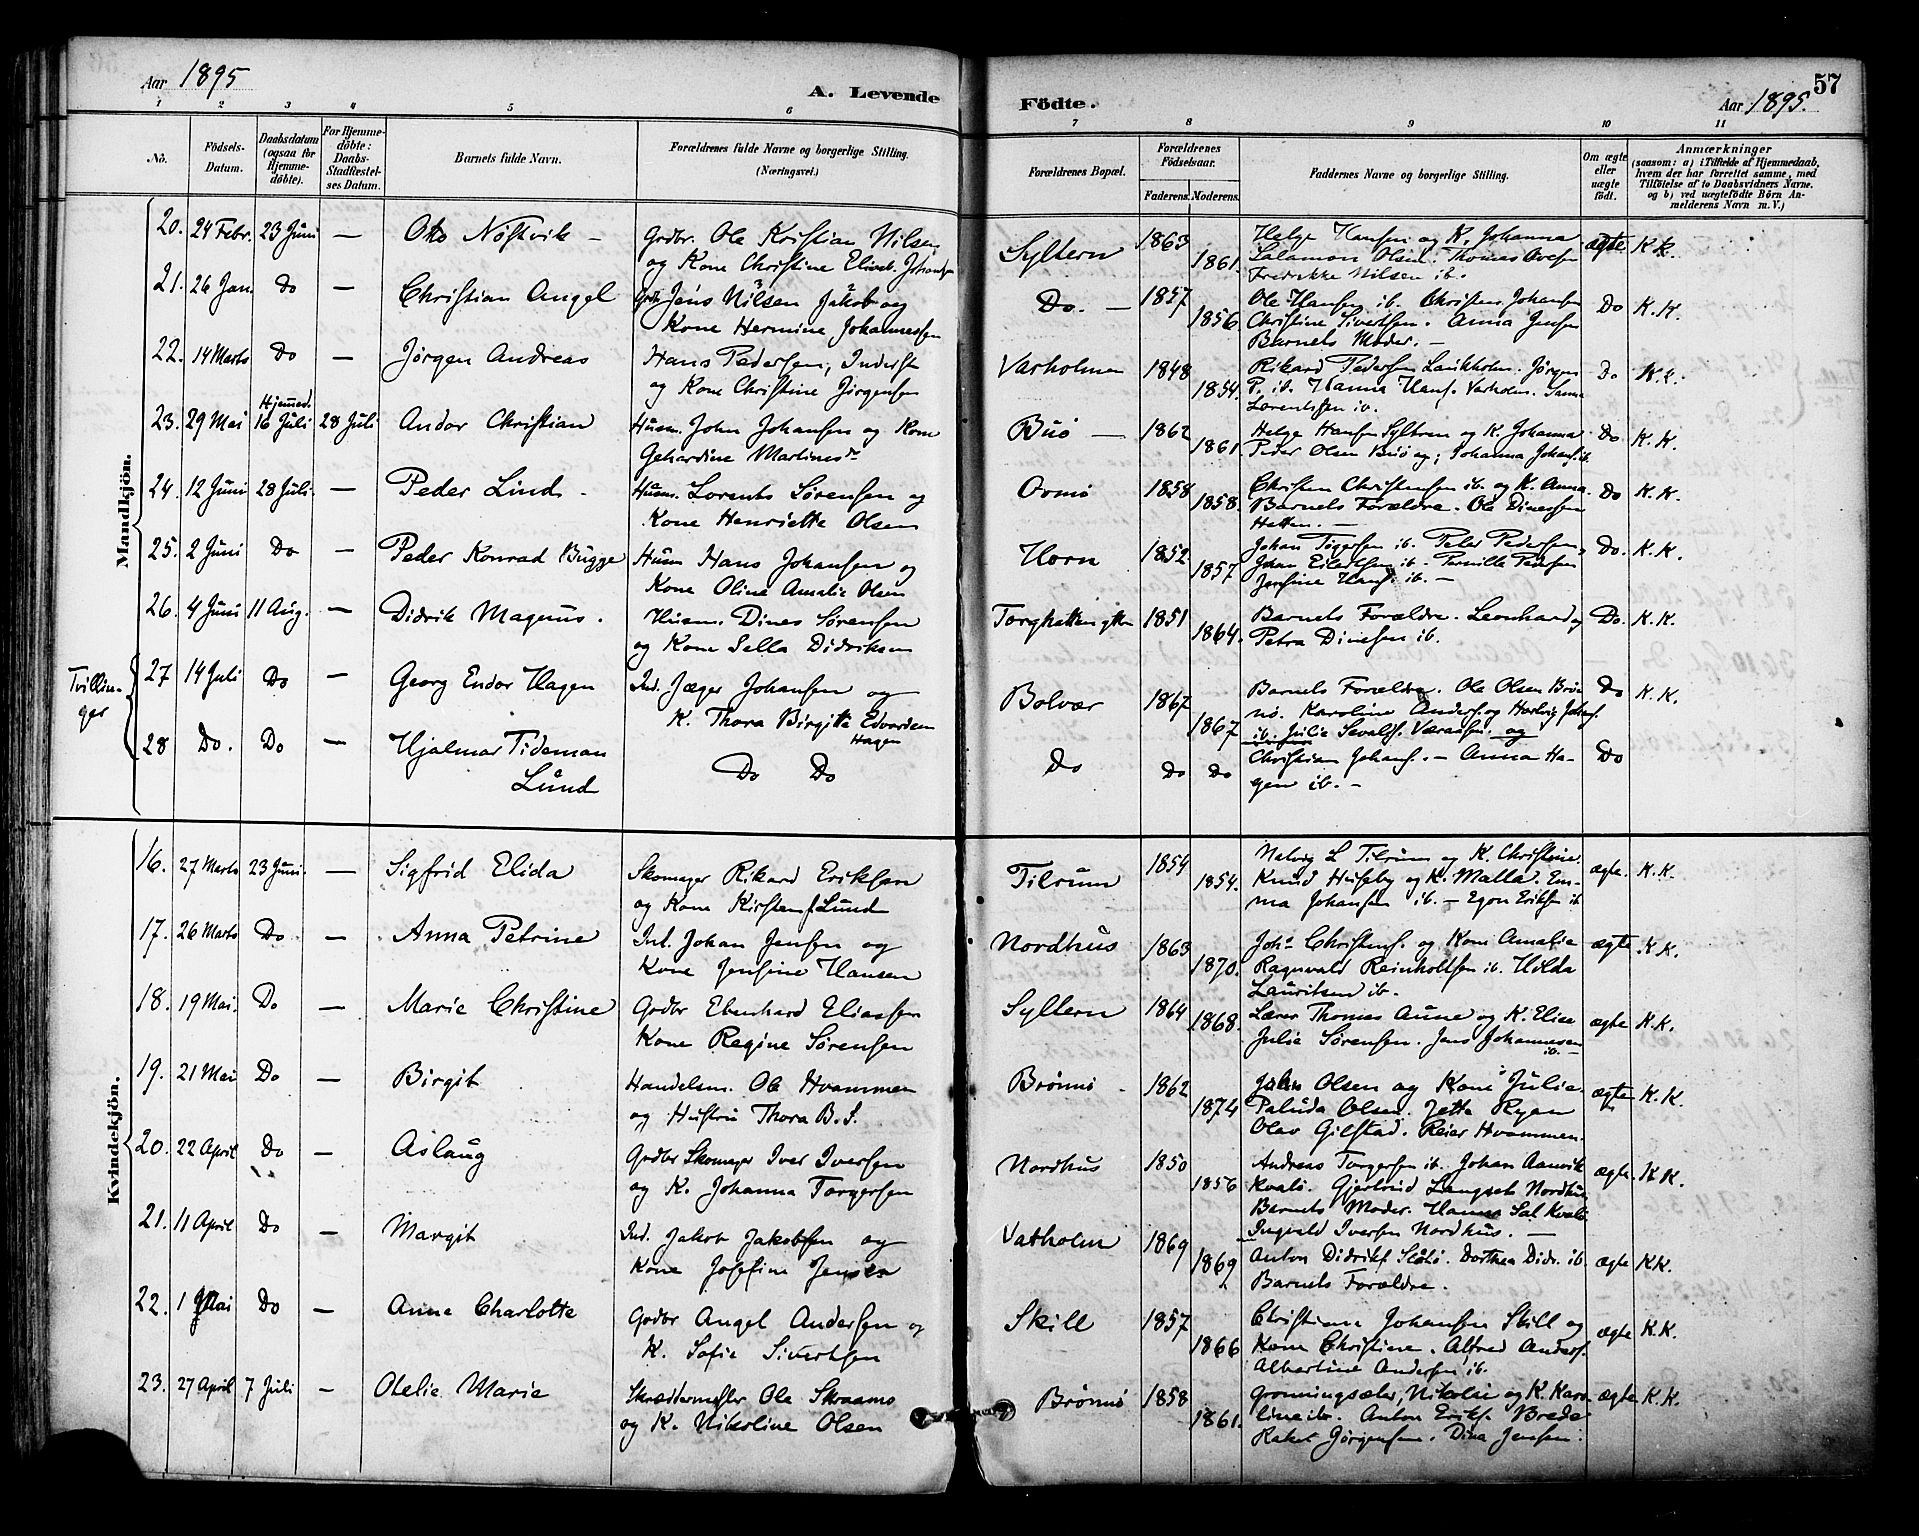 Aar 1895
A. Levende
Födte.
57
Aar 1895.
1 2 3 4 5 6 7 8 9 10 11
No.
Födsels-
Datum.
Daabsdatum
(ogsaa for
Hjemme-
døbte).
For Hjemme-
døbte:
Daabs-
Stadfæstel-
ses Datum.
Barnets fulde Navn.
Forældrenes fulde Navne og borgerlige Stilling.
(Næringsvei.)
Forældrenes Bopæl.
Forældrenes
Fødselsaar.
Faderens. Moderens.
Faddernes Navne og borgerlige Stilling.
Om ægte
eller
uægte
født.
Anmærkninger
(saasom: a) i Tilfælde af Hjemmedaab,
hvem der har forrettet samme, med
Tilföielse af to Daabsvidners Navne.
og b) ved uægtefödte Börn An-
melderens Navn m. V.)
Mandkjön.
20. 24 Febr. 23 Juni — Otto Nöstvik — Grdbr. Ole Kristian Nilsen
og Kone Christine Eliseb. Johansen
Syltern 1863 1861.
Helge Hansen og K. Johanna
Salamon Olsen. Thomas
Fredrikke Nilsen ib.
ægte K.K.
21. 26 Jan. Do — Christian Angel Grdb. Jens Nilsen Jakob og
Kone Hermine Johannessen
Do. — 1857 1856.
Ole Hansen ib. Christen Johansen
Christine Sivertsen. Anna Jensen
Barnets Moder. —
Do K.K.
22. 14 Marts Do — Jörgen Andreas Hans Pedersen, Inderst
og Kone Christine Jörgensen
Varholmen 1848 1854.
Rikard Pedersen Laukholm. Jörgen
P. ib. Hanna Hans. Varholm. Sanna
Lorentsen ib.
Do K.K.
23. 29 Mai Hjemmed. 16 Juli 28 Juli Andor Christian Husm. John Johansen og Kone
Gehardine Martinesdr
Buö — 1862 1861.
Helge Hansen Syltern og K. Johanna
Peder Olsen Buö og Johanna Johans. ib.
Do. K.K.
24. 12 Juni 28 Juli. — Peder Lind. Husm. Lorents Sörensen og
Kone Henriette Olsen
Ormö 1858 1858.
Christen Christensen ib. og K. Anna.
Barnets Forældre. Ole Dinessen
Hatten. —
Do K.K.
25. 2 Juni Do — Peder Konrad Bugge Husm Hans Johansen og
Kone Oline Amalie Olsen
Horn 1852 1857
Johan ib. Peter Pedersen,
Johan ib. Pernille Pedersen
Jensine Hans. ib. —
Do. K.K.
26. 4 Juni 11 Aug. — Didrik Magnus. Husm. Dines Sörensen
og Kone Sella Didriksen
Torghatten 1851 1864.
Barnets Forældre. Leonhard og
Petra Dinesen ib.
Do. K.K.
Tvillin-
ger
27 14 Juli Do — Georg Endor Hagen Ind. Jæger Johansen og
K. Thora Birgitte Edvardsen
Hagen
Bolvær 1867 1867
Barnets Forældre. Ole Olsen Brön-
nö. Karoline Anders. og Hartvig Johans.
ib. Julie Sevalds. og
Do K.K.
28 Do. Do — Hjalmar Tideman
Lund
Do Do
Do Do Do
Christian Johans. — Anna Ha-
gen ib. —
Do
Kvindekjön.
16. 27 Marts 23 Juni. — Sigfrid Elida Skomager Rikard Eriksen
og Kone Kirsten Lund
Tilrum 1854 1854.
L Tilrum og K. Christine.
Knud Huseby og K. Malla. Em-
ma Johansen ib. — Egon Eriksen ib
ægte. K.K.
17. 26 Marts Do — Anna Petrine Ind. Johan Jensen og
Kone Jensine Hansen
Nordhus 1863 1870.
Johs Christens. og Kone Amalie
Ragnvald Reinholtsen ib. Hilda
Lauritsen ib.
ægte. K.K.
18. 19 Mai. Do — Marie Christine Grdbr Ebenhard Eliassen
Kone Regine Sörensen
Syltern 1864 1868.
Lærer Thomas Aune og K. Elise
Julie Sörensen. Jens Johannessen
ib. —
ægte K.K.
19. 21 Mai Do — Birgit Handelsm. Ole Hvammen
og Hustru Thora B. S.
Brönnö 1862 1874
John Olsen og Kone Julie
Paluda Olsen. Jetta Ryan
Olav Gilstad. Reier Hvammen.
ægte K.K.
20. 22 April Do — Aslaug Grdbr Skomager Iver Iversen
og K. Johanna Torgersen
Nordhus 1850 1856
Andreas Torgersen ib. Johan Aanvik
Kvalö. Gjertrud Langset Nordhus
Barnets Moder. Hanna Sal. Kvalö
Ingvald Iversen Nordhus. —
ægte. K.K.
21. 11 April Do — Margit Ind. Jakob Jakobsen og
Kone Josefine Jensen
Vatholm 1869 1869
Anton Didriks. Dorthea Didr. ib.
Barnets Forældre.
ægte K.K.
22. 1 Mai Do — Anne Charlotte Grdbr Angel Andersen og
K. Sofie Sivertsen
Skill 1857 1866
Christian Johansen Skill og
Kone Christine. Alfred Anders.
Albertine Andersen ib.
ægte K.K.
23. 27 April 7 Juli — Olelie Marie Skræddermester Ole Skraamo
og K. Nikoline Olsen
Brönnö 1858 1861.
Grønningsæter, Nikolai og K. Karo-
line ib. Anton Eriks. Brede
Rakel Jörgensen. Dina Jensen.
ægte K.K.